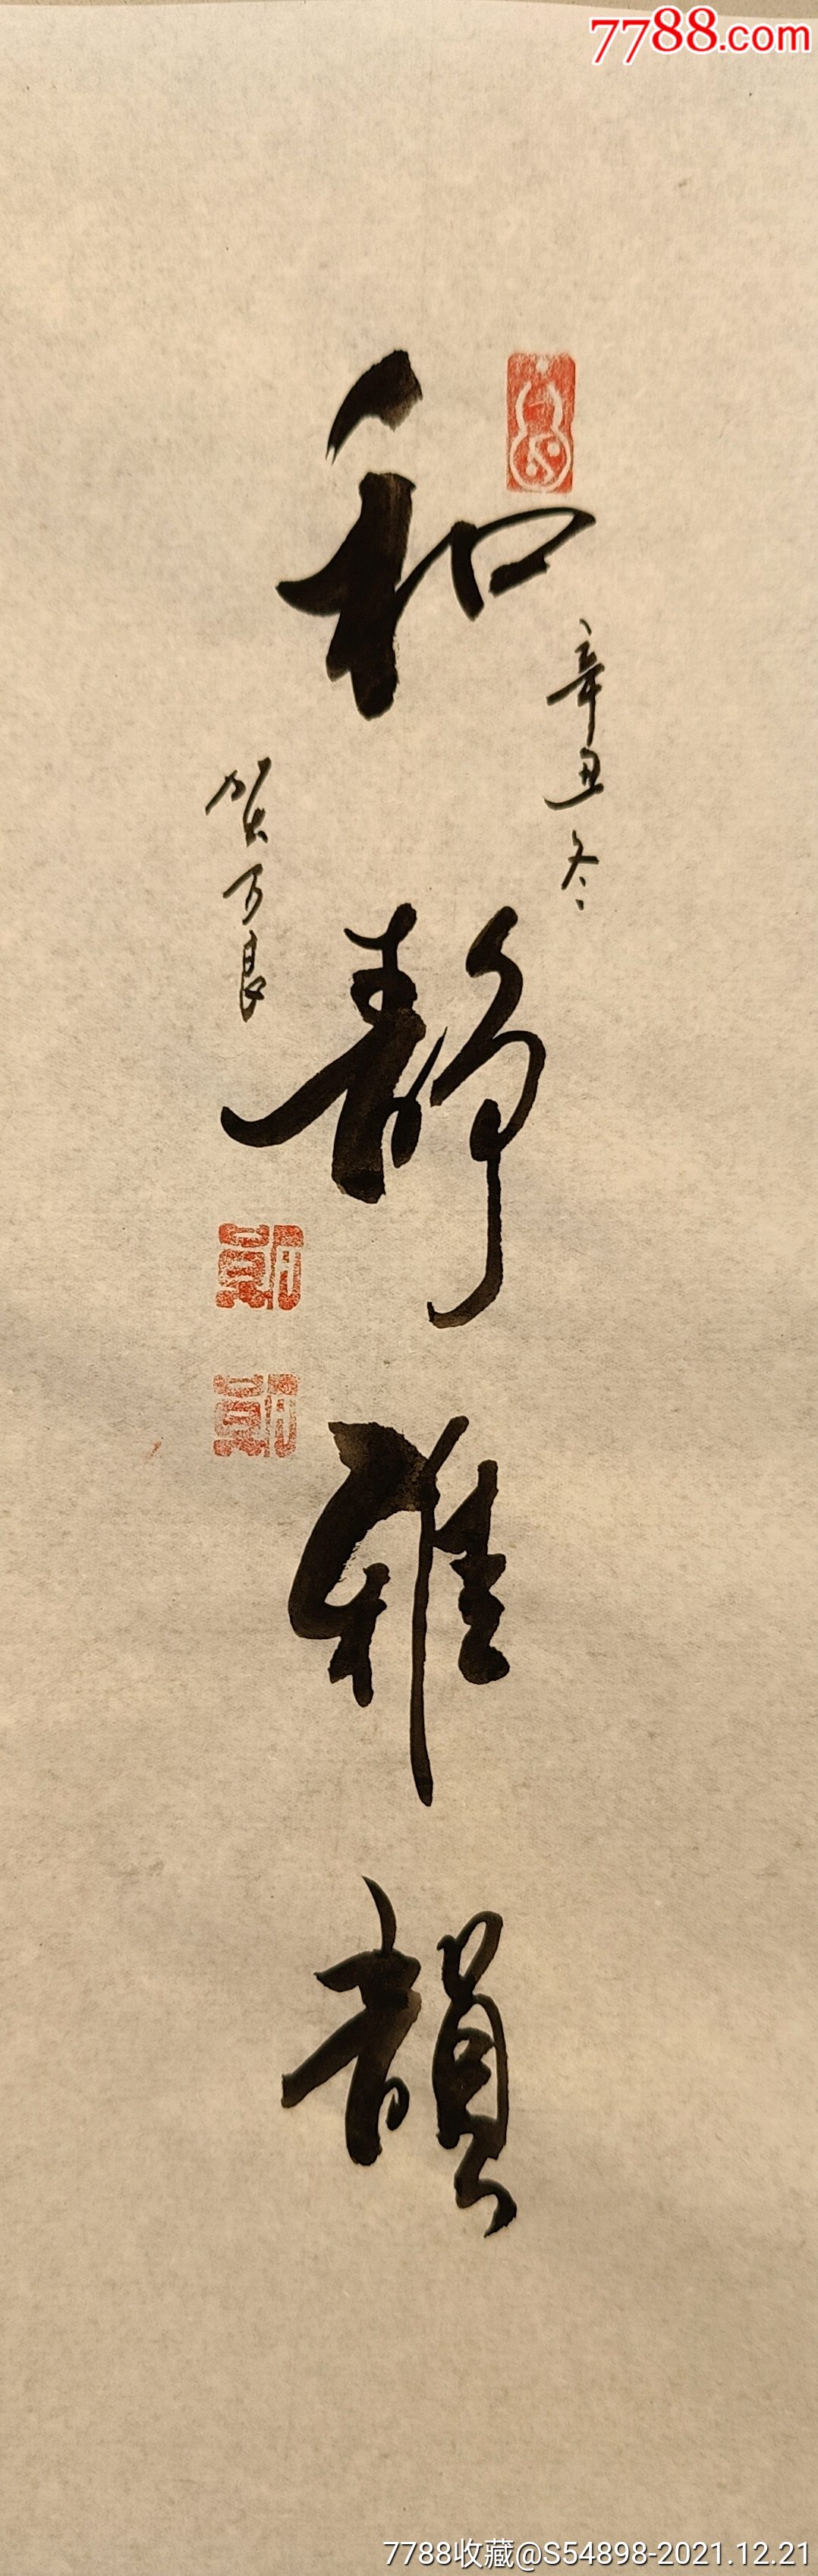 7788.com
辛丑冬
和静雅韻
贺万良
7788收藏@S54898-2021.12.21